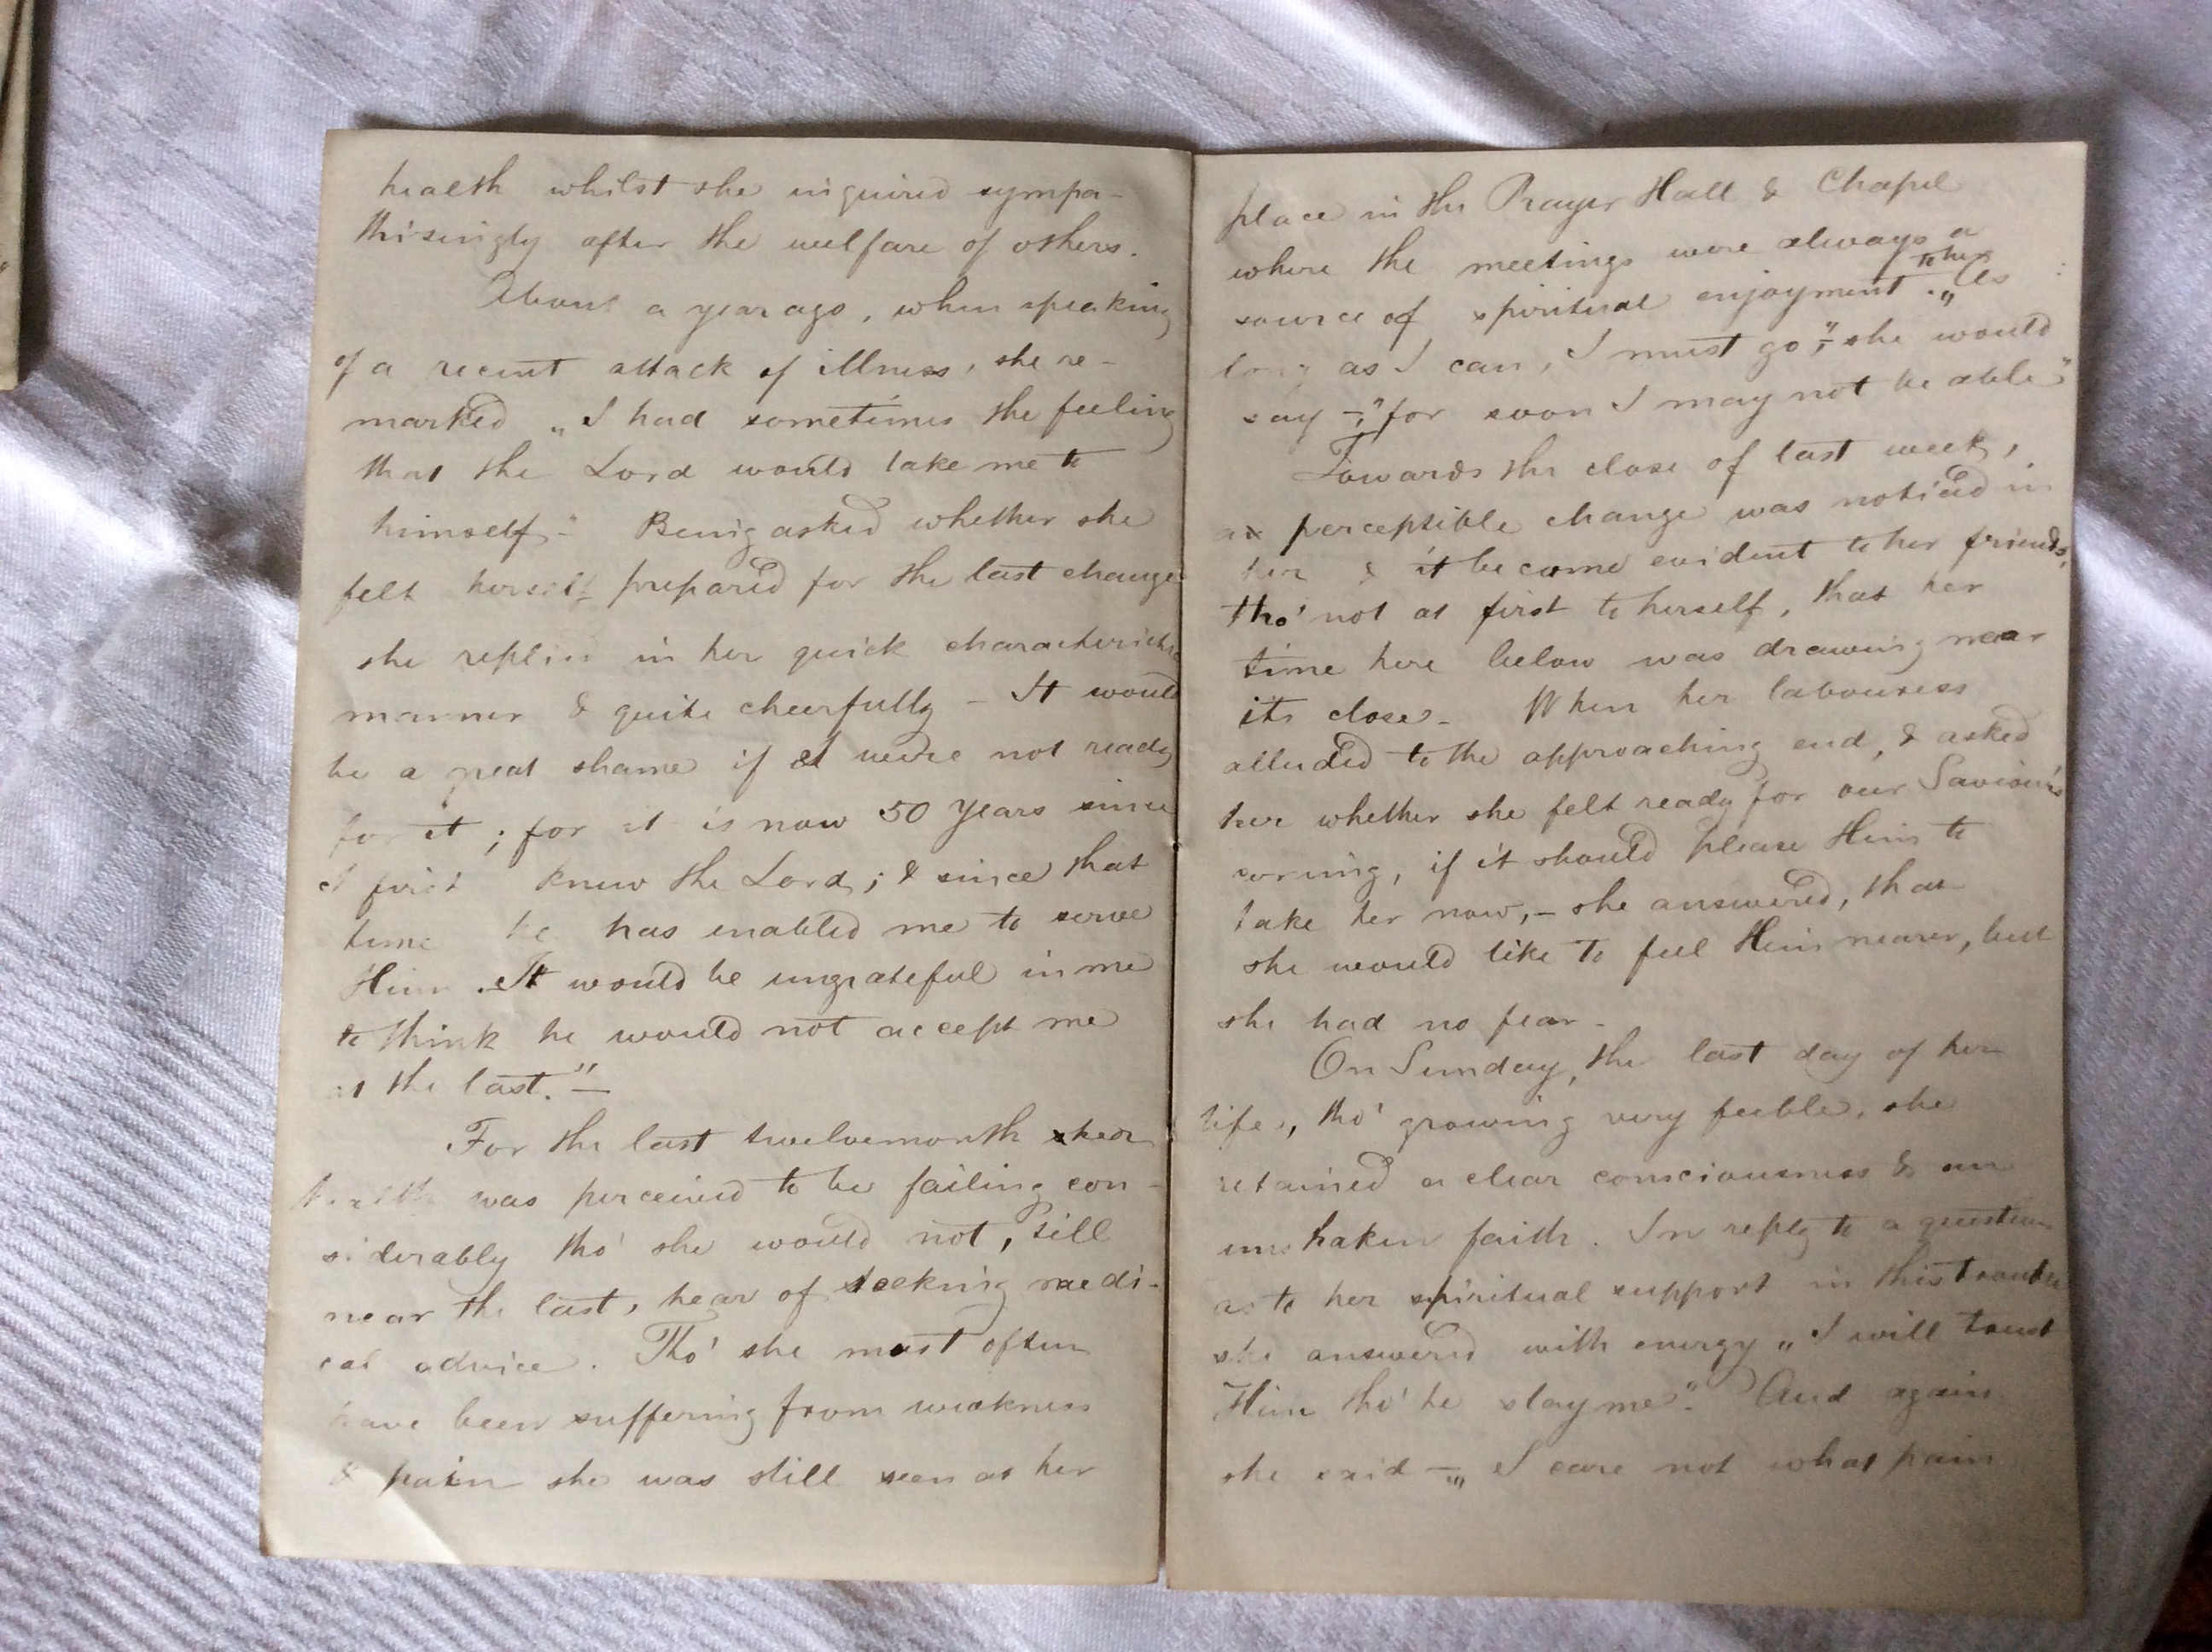 health whilst she inquired sympa-
thisingly after the welfare of others.
About a year ago, when speaking
of a recent attack of illness, she re-
marked „I had sometimes the feeling
that the Lord would take me to
himself." Being asked whether she
felt herself prepared for the last change
she replied in her quick characteristic
manner & quite cheerfully – It would
be a great shame if I were not ready
for it; for it is now 50 years since
I first knew the Lord; & since that
time he has enabled me to serve
Him. It would be ungrateful in me
to think he would not accept me
at the last." –
For the last twelvemonth her
health was perceived to be failing con-
siderably tho' she would not, till
near the last, hear of seeking medi-
cal advice. Tho' she must often
have been suffering from weakness
& pain she was still seen at her
place in the Prayer Hall & Chapel
where the meetings were always a
source of spiritual enjoyment to her. „As
long as I can, I must go", she would
say –, "for soon I may not be able"
Towards the close of last week,
a perceptible change was noticed in
her & it became evident to her friends,
tho' not at first to herself, that her
time here below was drawing near
its close – When her labouress
alluded to the approaching end, & asked
her whether she felt ready for our Saviour's
coming, if it should please Him to
take her now, – she answered, that
she would like to feel Him nearer, but
she had no fear –
On Sunday, the last day of her
life, tho' growing very feeble, she
retained a clear consciousness & an
unshaken faith. In reply to a question
as to her spiritual support in this trouble
she answered with energy „I will trust
Him tho' he slay me". And again
she said – „I care not what pain